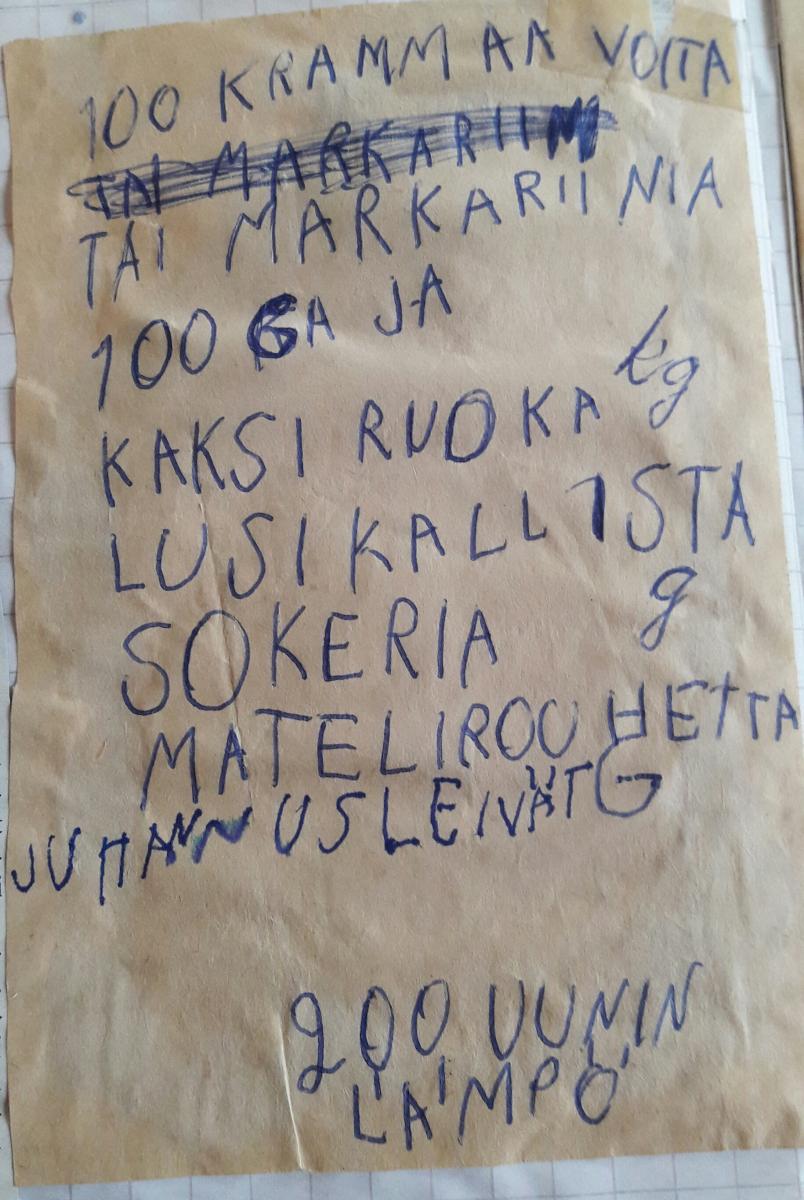 100 KRAMMAA VOITA
TAI MARKARIIN
TAI MARKARIINIA
100 GA JA
kg
KAKSI RUOKA
LUSIKALLISTA
g
SOKERIA
MATELIROUHETTA
JUHANNUSLEIVÄT G
200 UUNIN
LÄMPÖ